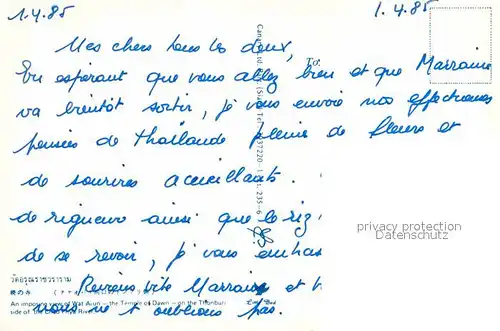 1.4.85
1.4.85
Mes chers tous les deux,
En espérant que vous allez bien et que Marraine
va bientôt sortir, je vous envoie nos affectueuses
pensées de Thaïlande pleine de fleurs et
de sourires accueillants.
de rigueur ainsi que le riz
de se revoir, je vous embras
Reviens vite Marraine et
nous ne t'oublions pas.
To:
วัดอรุณราชวราราม
An imposing view of Wat Arun - the Temple of Dawn - on the Thonburi
side of the River
privacy protection
Datenschutz